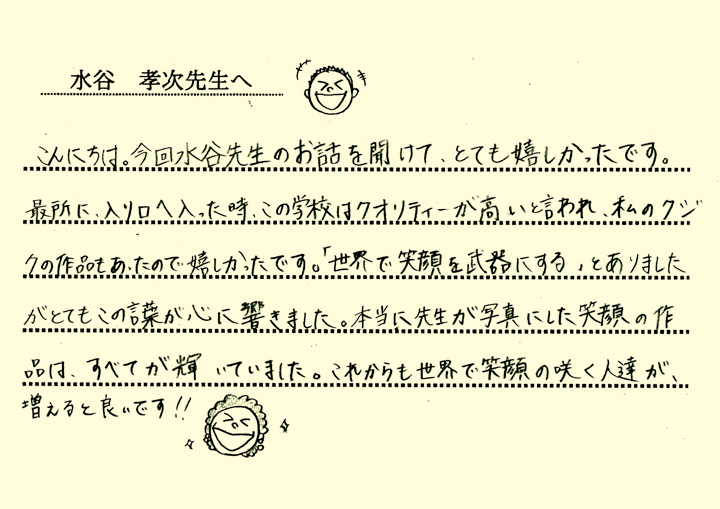 水谷　孝次先生へ
こんにちは。今回水谷先生のお話を聞けて、とても嬉しかったです。
最所に、入り口へ入った時、この学校はクオリティーが高いと言われ、私のクジ
クの作品もあったので嬉しかったです。「世界で笑顔を武器にする」とありました
がとてもこの言葉が心に響きました。本当に先生が写真にした笑顔の作
品は、すべてが輝いていました。これからも世界で笑顔の咲く人達が、
増えると良いです!!